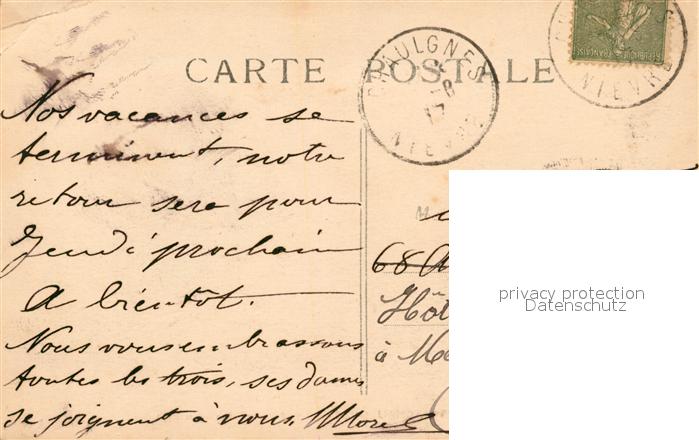 CARTE POSTALE
CHAULGNES
NIEVRE
NIEVRE
RÉPUBLIQUE FRANÇAISE
Nos vacances se
terminent, notre
retour sera pour
Jeudi prochain
A bientôt.
Nous vous embrassons
toutes les trois, ses dames
se joignent à nous. Morel
68
Hôt
à
privacy protection
Datenschutz